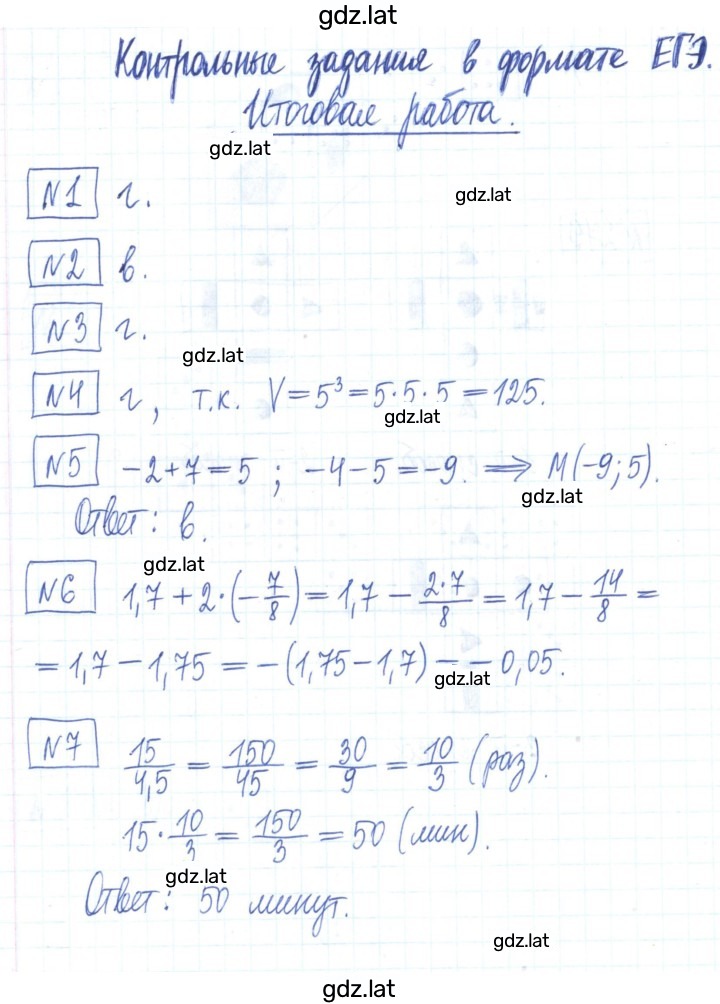 gdz.lat
Контрольные задания в формате ЕГЭ.
Итоговая работа.
gdz.lat
№1 г.
gdz.lat
№2 в.
№3 г.
gdz.lat
№4 г, т.к. V=5³=5·5·5=125.
gdz.lat
№5 -2+7=5 ; -4-5=-9. ⟹ M(-9;5).
gdz.lat
Ответ: в.
gdz.lat
№6 1,7+2·(-7/8)=1,7-2·7/8=1,7-14/8=
=1,7-1,75=-(1,75-1,7)--0,05.
gdz.lat
№7 15/4,5=150/45=30/9=10/3 (раз).
15·10/3=150/3=50 (мин).
gdz.lat
Ответ: 50 минут.
gdz.lat
gdz.lat